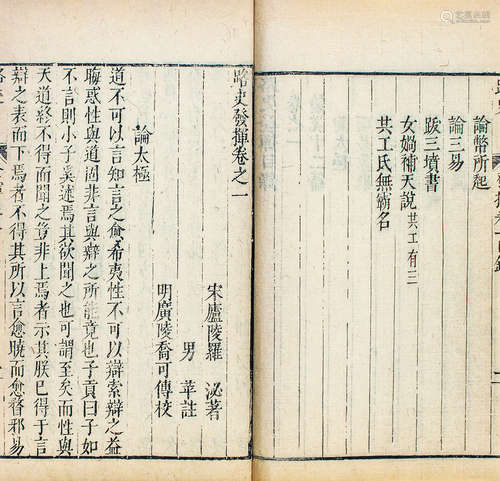 論幣所起
論三易
跋三墳書
女媧補天說共工有三
共工氏無霸名
路史發揮卷之一
宋廬陵羅 泌著
男 苹註
明廣陵喬可傳校
論太極
道不可以言知言之愈希夷性不可以辯索辯之益
晦惑性與道固非言與辯之所能竟也子貢曰子如
不言則小子奚述焉其欲聞之也可謂至矣而性與
天道終不得而聞之豈非上焉者示其朕已得于言
辯之表而下焉者不得其所以言愈曉而愈瞀邪易